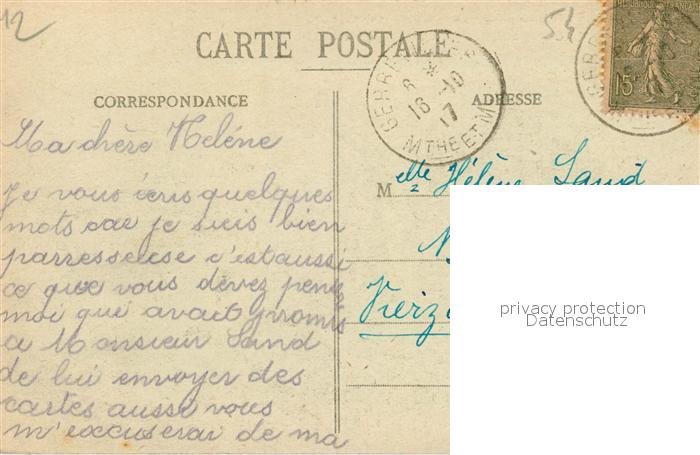 12
54
CARTE POSTALE
CORRESPONDANCE
ADRESSE
15
18 17
MTHEETM
Ma chère Hélène
Je vous écris quelques
mots car je suis bien
parresseuse c'est aussi
ce que vous devez penser
moi qui avait promis
a Monsieur Sand
de lui envoyer des
cartes aussi vous
m'excuserai de ma
Melle Hélène Sand
Vierz
privacy protection
Datenschutz